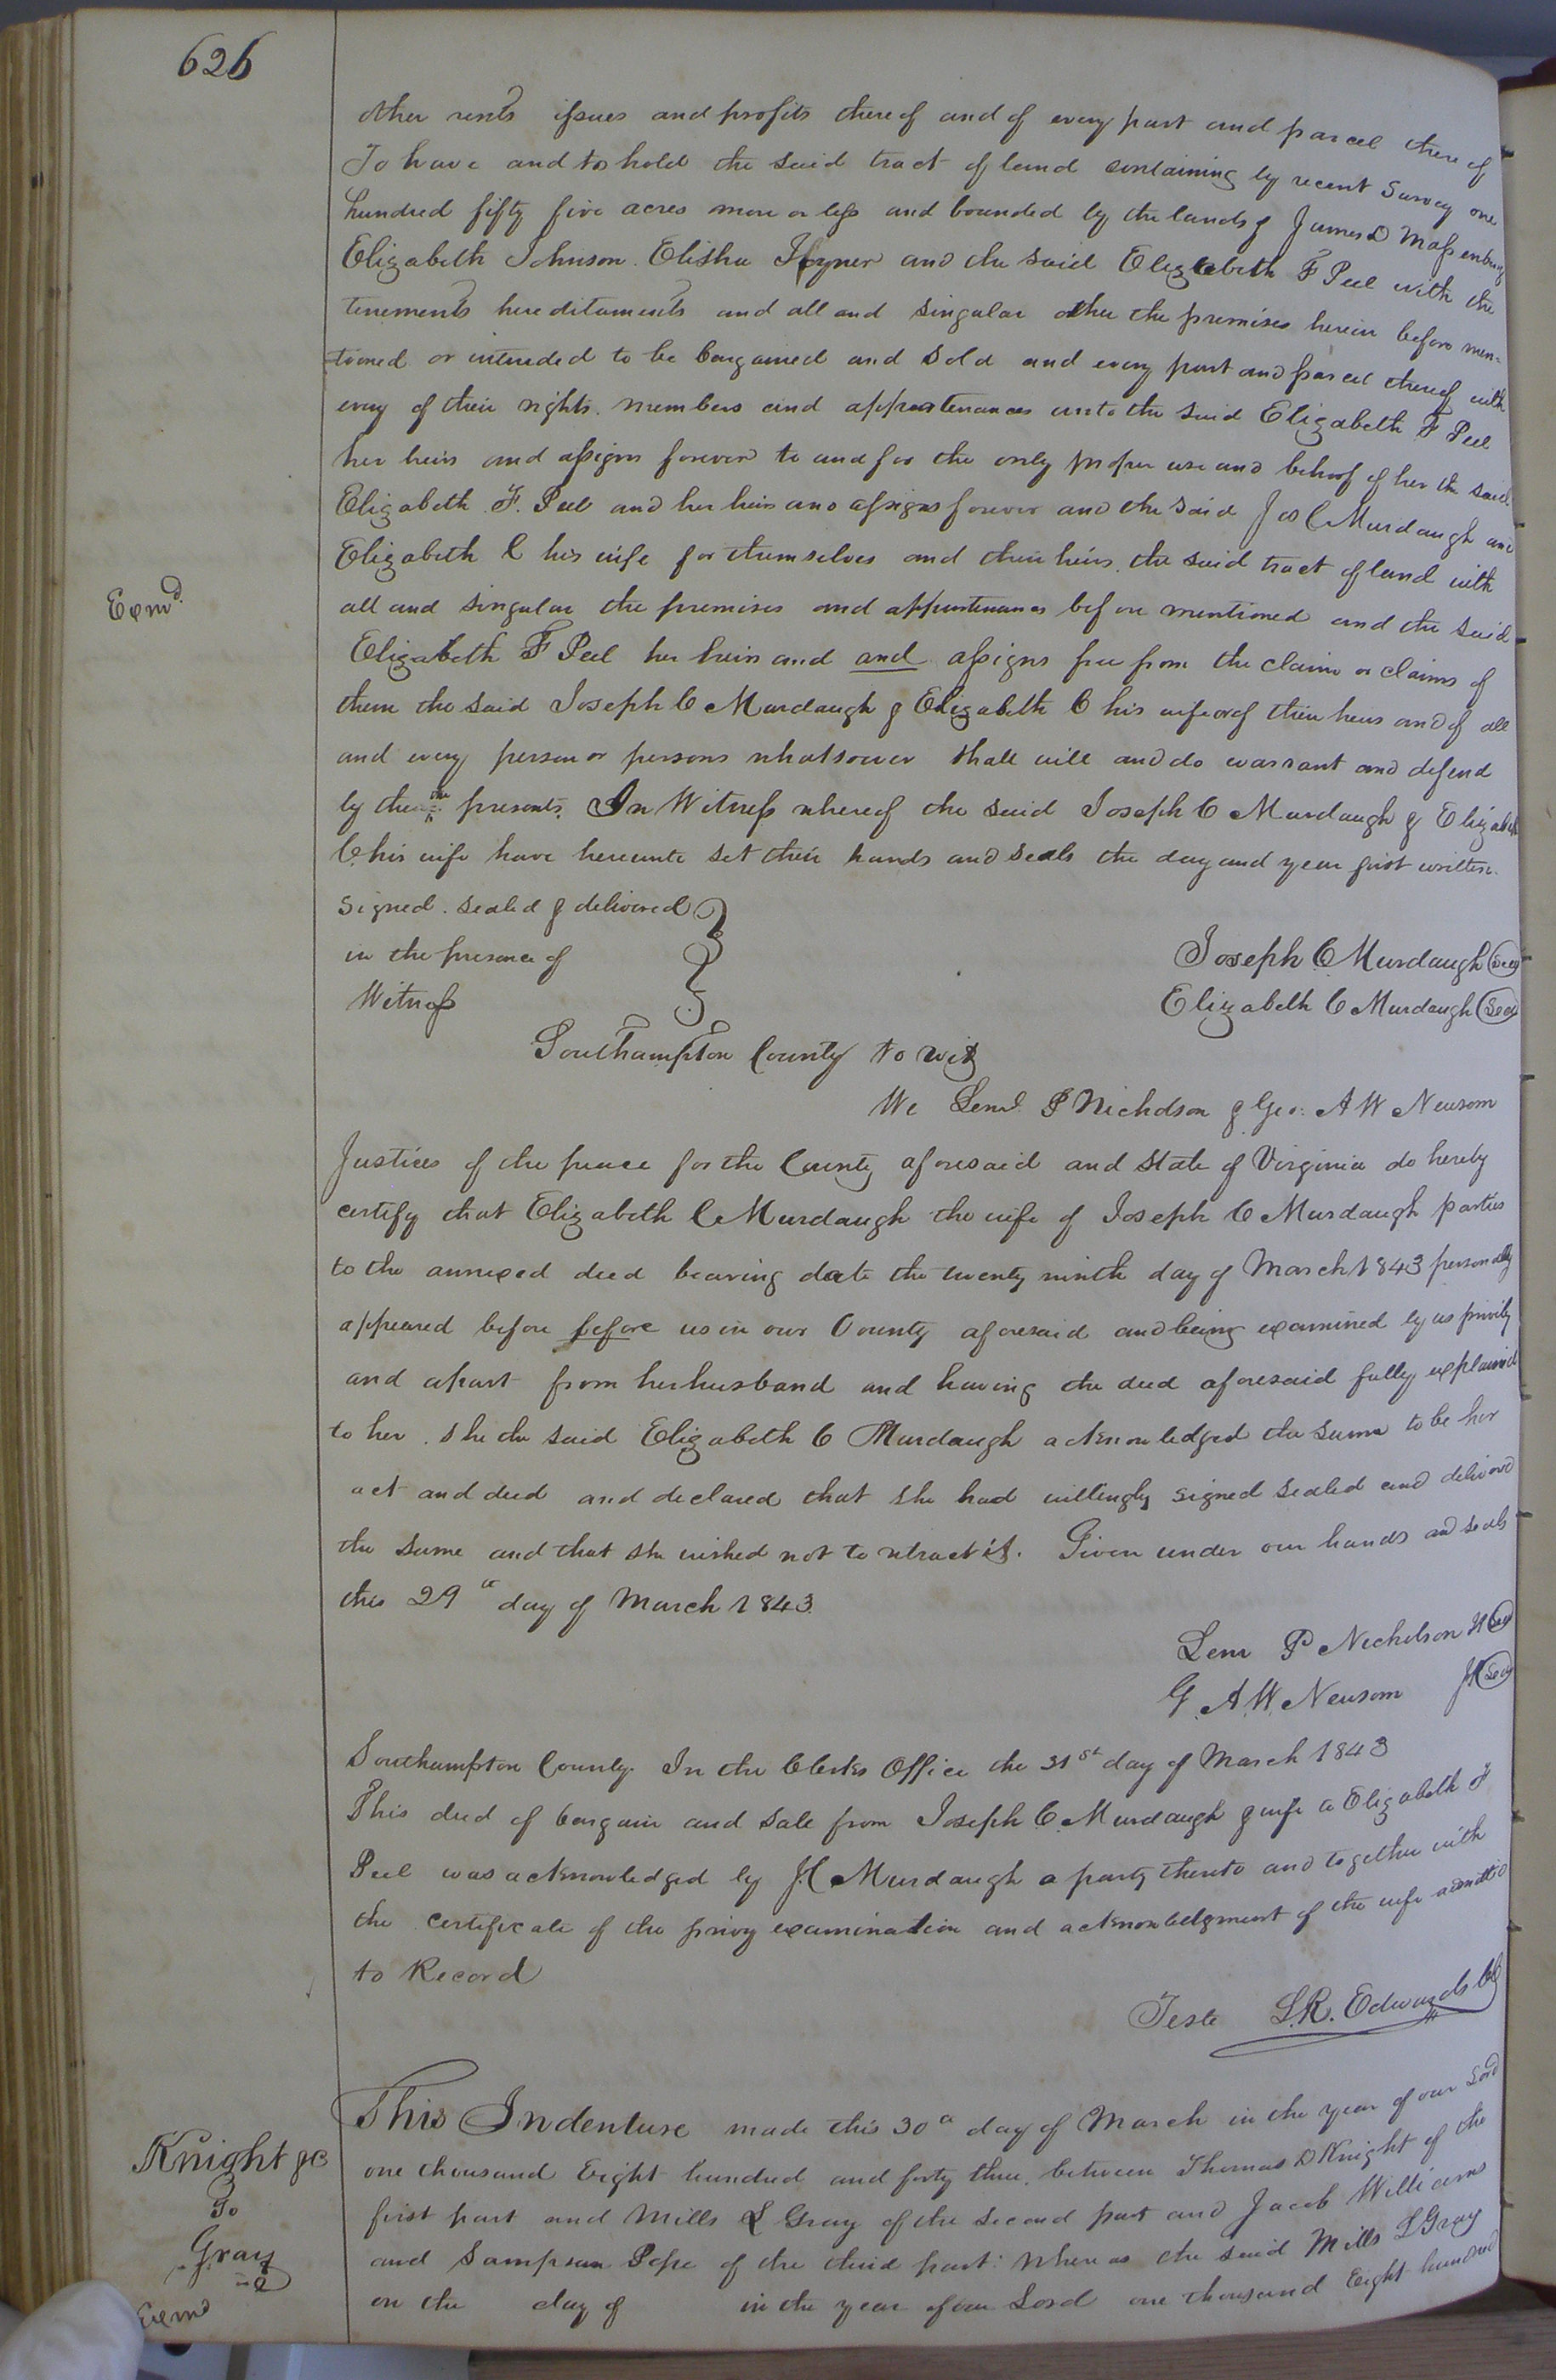 626
other rents issues and profits thereof and of every part and parcel there of
To have and to hold the said tract of land containing by recent survey one
hundred fifty five acres more or less and bounded by the lands of James D Massenburg
Elizabeth Johnson Elisha Joyner and the said Elizabeth F Peel with the
tenements hereditaments and all and singular other the premises herein before men=
tioned or intended to be bargained and sold and every part and parcel thereof with
every of their rights members and appurtenances unto the said Elizabeth F Peel
her heirs and assigns forever to and for the only proper use and behoof of her the said
Elizabeth F. Peel and her heirs and assigns forever and the said Jos C Murdaugh and
Elizabeth C his wife for themselves and their heirs the said tract of land with
Exmd.
all and singular the premises and appurtenances before mentioned and the said
Elizabeth F Peel her heirs and and assigns free from the claim or claims of
them the said Joseph C Murdaugh & Elizabeth C his wife or of their heirs and of all
and every person or persons whatsoever shall will and do warrant and defend
by these presents. In Witness whereof the said Joseph C Murdaugh & Elizabeth
C his wife have hereunto set their hands and seals the day and year first written.
Signed. sealed & delivered
in the presence of
Witness
Joseph C Murdaugh (Seal)
Elizabeth C Murdaugh (Seal)
Southampton County to wit
We Leml. P Nicholson & Geo: A W Newsom
Justices of the peace for the County aforesaid and State of Virginia do hereby
certify that Elizabeth C Murdaugh the wife of Joseph C Murdaugh parties
to the annexed deed bearing date the twenty ninth day of March 1843 personally
appeared before before us in our County aforesaid and being examined by us privily
and apart from her husband and having the deed aforesaid fully explained
to her. she the said Elizabeth C Murdaugh acknowledged the same to be her
act and deed and declared that she had willingly signed sealed and delivered
the same and that she wished not to retract it. Given under our hands and seals
this 29th day of March 1843.
Lem P Nicholson JP (Seal)
G. A. W. Newsom JP (Seal)
Southampton County. In the Clerks Office the 31st day of March 1843
This deed of bargain and sale from Joseph C. Murdaugh & wife to Elizabeth F
Peel was acknowledged by J.C Murdaugh a party thereto and together with
the certificate of the privy examination and acknowledgment of the wife admitted
to Record
Teste L.R. Edwards Clk
This Indenture made this 30th day of March in the year of our Lord
Knight &c
one thousand Eight hundred and forty three. between Thomas D Knight of the
To
first part and Mills L Gray of the second part and Jacob Williams
Gray
and Sampson Pope of the third part: Whereas the said Mills L Gray
on the day of in the year of our Lord one thousand Eight hundred
Exmd